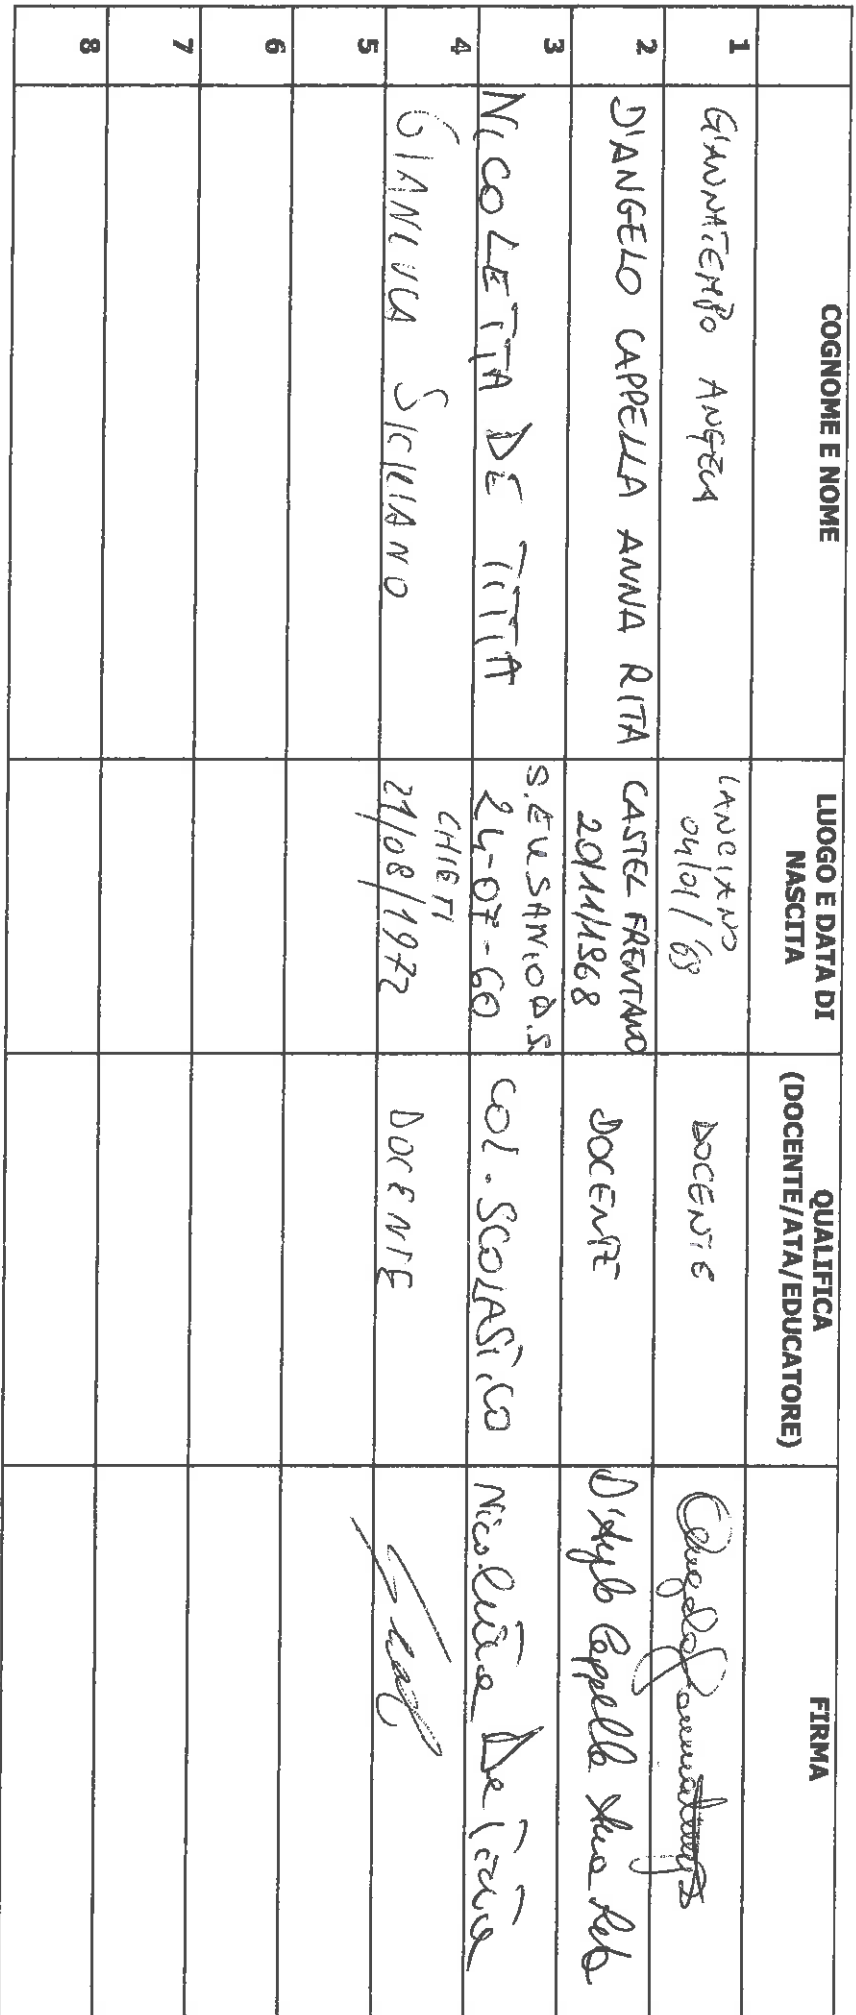 COGNOME E NOME LUOGO E DATA DI NASCITA QUALIFICA (DOCENTE/ATA/EDUCATORE) FIRMA
1 GIANNATEMPO ANGELA LANCIANO 04/01/68 DOCENTE
2 D'ANGELO CAPPELLA ANNA RITA CASTEL FRENTANO 20/11/1968 DOCENTE D'Angelo Cappella Anna Rita
3 NICOLETTA DE TITTA S. EUSANIO D.S. 24-07-60 COL. SCOLASTICO Nicoletta De Titta
4 GIANLUCA SICILIANO CHIETI 21/08/1972 DOCENTE
5
6
7
8